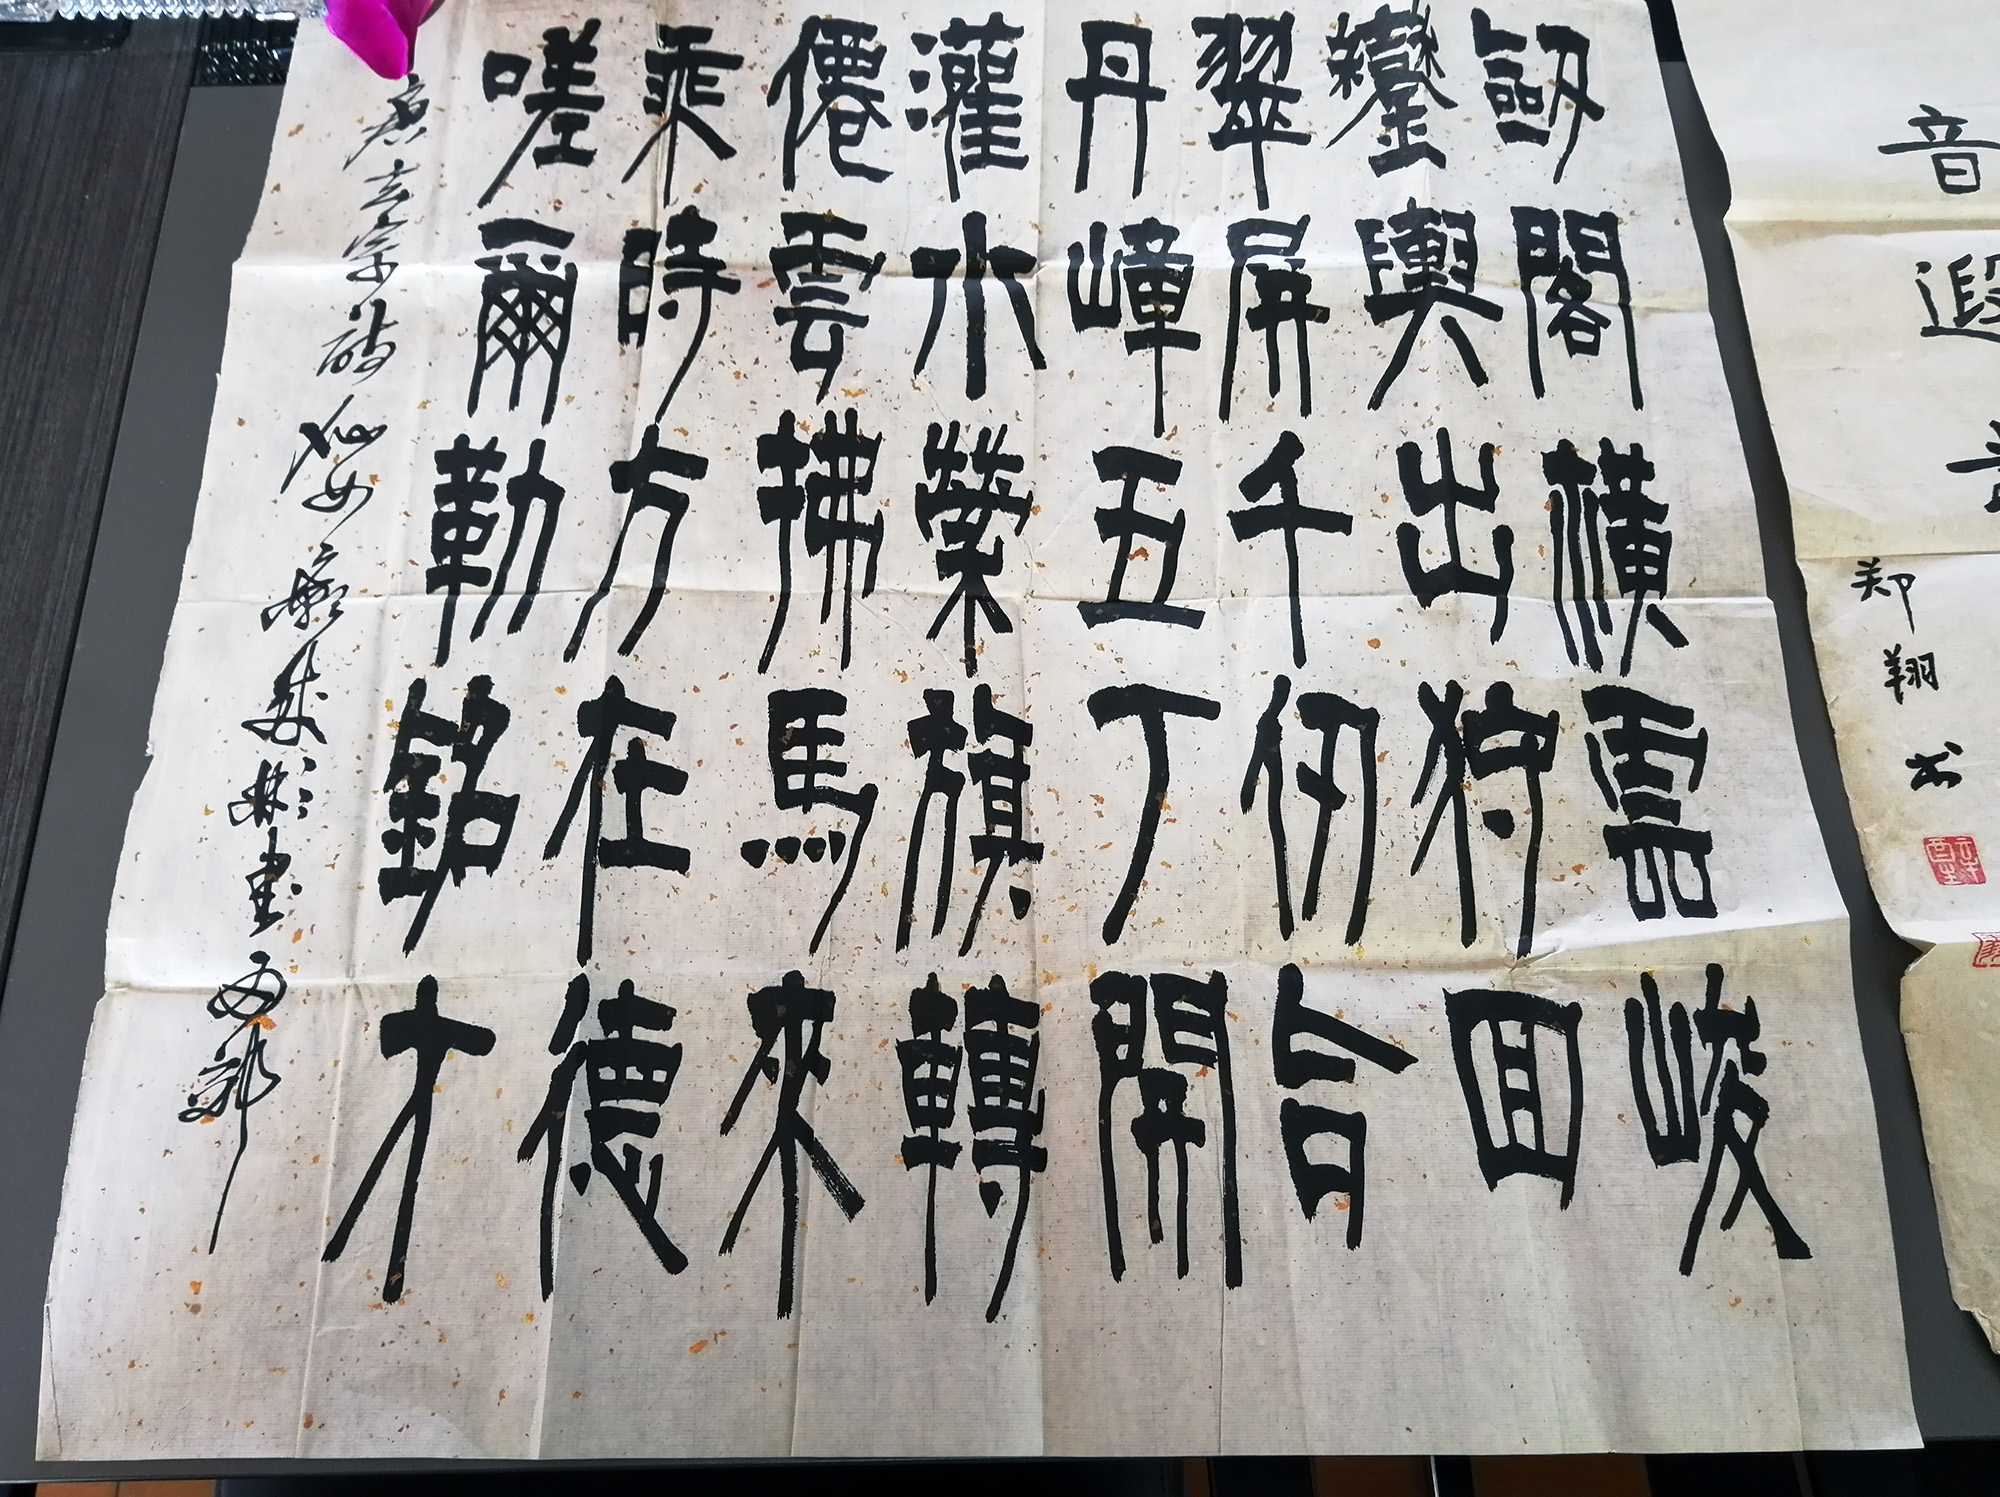 劔閣横雲峻
鑾輿出狩回
翠屏千仞合
丹嶂五丁開
灌水縈旗轉
僊雲拂馬來
乘時方在德
嗟爾勒銘才
唐玄宗詩
音遐
郑翔书